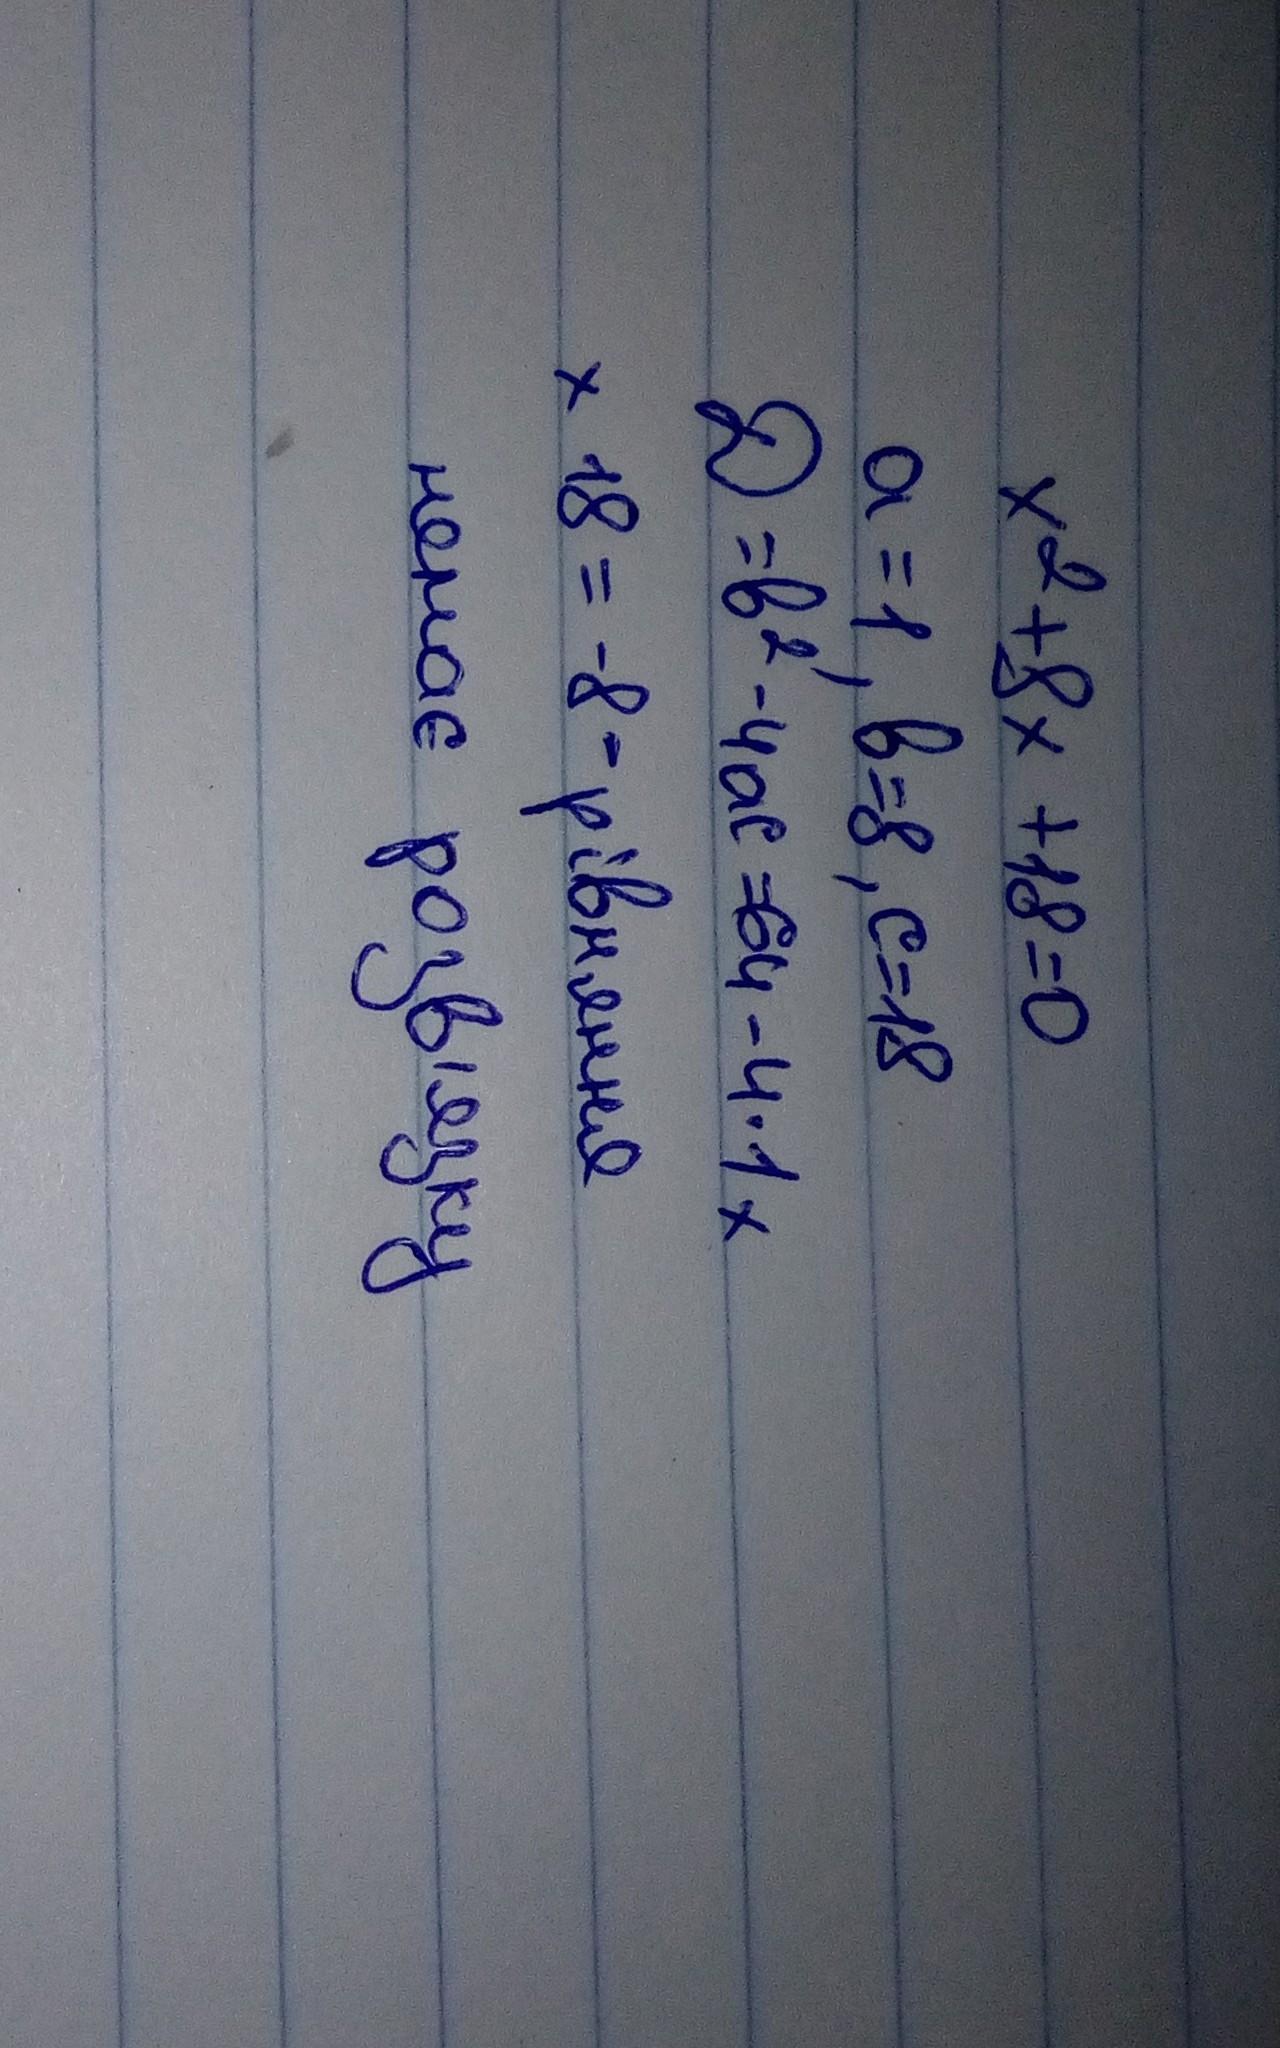 x²+8x+18=0
a=1, b=8, c=18
D=b²-4ac=64-4·1×
×18=-8-рівняння
немає розв'язку